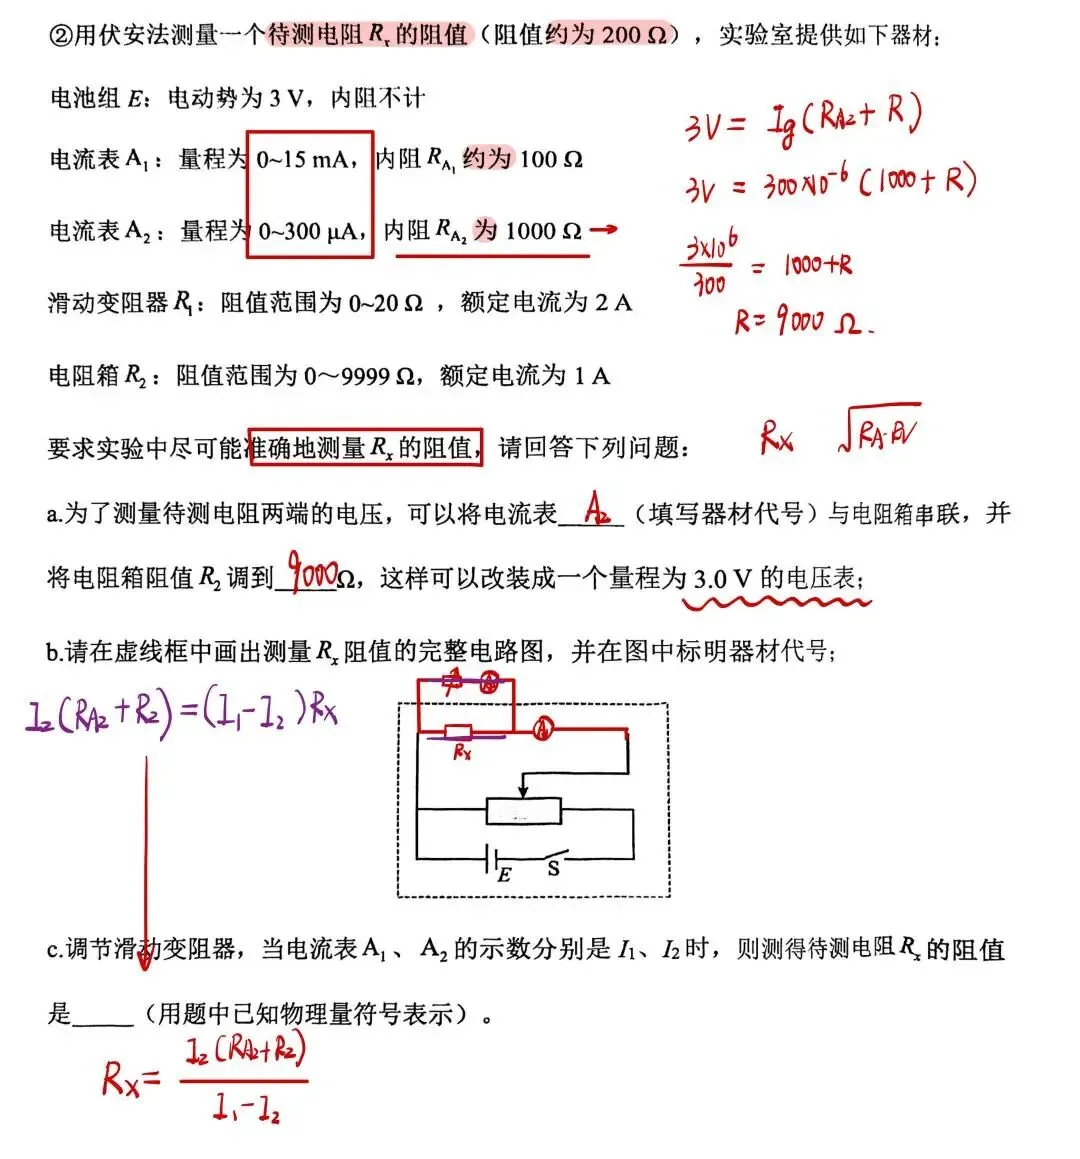 ②用伏安法测量一个待测电阻 Rx 的阻值（阻值约为 200 Ω），实验室提供如下器材：
电池组 E：电动势为 3 V，内阻不计
电流表 A₁：量程为 0~15 mA，内阻 R_A₁ 约为 100 Ω
电流表 A₂：量程为 0~300 μA，内阻 R_A₂ 为 1000 Ω →
滑动变阻器 R₁：阻值范围为 0~20 Ω ，额定电流为 2 A
电阻箱 R₂：阻值范围为 0～9999 Ω，额定电流为 1 A
3V = Ig(R_A2 + R)
3V = 300×10⁻⁶ (1000 + R)
3×10⁶/300 = 1000+R
R = 9000 Ω.
要求实验中尽可能准确地测量 Rx 的阻值，请回答下列问题：
Rx √(R_A·R_V)
a.为了测量待测电阻两端的电压，可以将电流表 A₂ （填写器材代号）与电阻箱串联，并
将电阻箱阻值 R₂ 调到 9000 Ω，这样可以改装成一个量程为 3.0 V 的电压表；
b.请在虚线框中画出测量 Rx 阻值的完整电路图，并在图中标明器材代号；
I₂(R_A2 + R₂) = (I₁ - I₂)Rx
A₂
A₁
Rx
E S
c.调节滑动变阻器，当电流表 A₁、A₂ 的示数分别是 I₁、I₂ 时，则测得待测电阻 Rx 的阻值
是____（用题中已知物理量符号表示）。
Rx = I₂(R_A2 + R₂)/(I₁ - I₂)